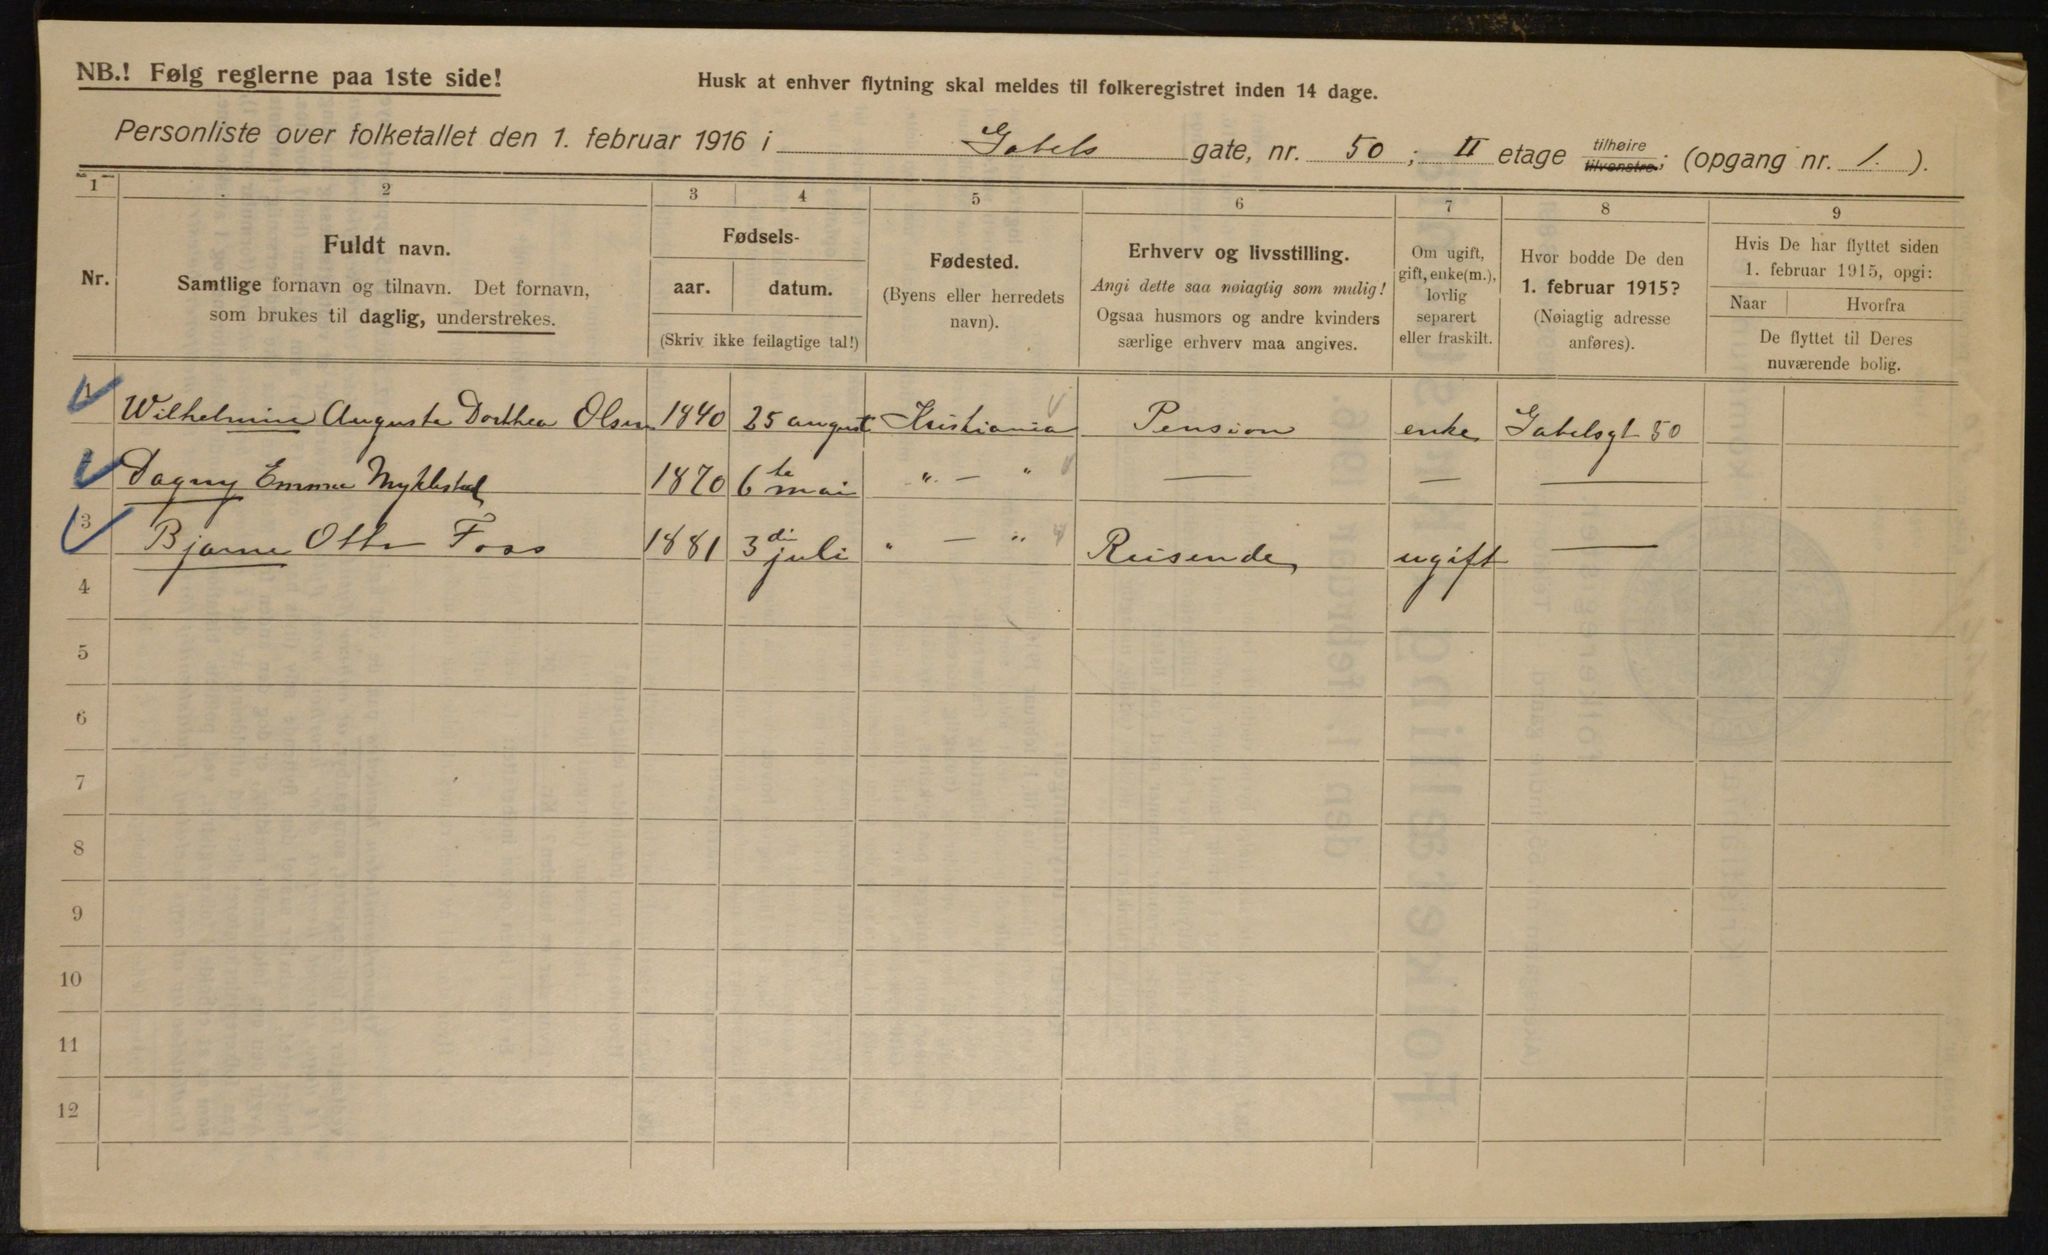 NB.! Følg reglerne paa 1ste side!
Husk at enhver flytning skal meldes til folkeregistret inden 14 dage.
Personliste over folketallet den 1. februar 1916 i Gabels gate, nr. 50 ; II etage tilhøire tilvenstre; (opgang nr. 1. ).
1 2 3 4 5 6 7 8 9
Nr.
Fuldt navn.
Samtlige fornavn og tilnavn. Det fornavn,
som brukes til daglig, understrekes.
Fødsels-
aar. datum.
(Skriv ikke feilagtige tal!)
Fødested.
(Byens eller herredets
navn).
Erhverv og livsstilling.
Angi dette saa nøiagtig som mulig!
Ogsaa husmors og andre kvinders
særlige erhverv maa angives.
Om ugift,
gift, enke(m.),
lovlig
separert
eller fraskilt.
Hvor bodde De den
1. februar 1915?
(Nøiagtig adresse
anføres).
Hvis De har flyttet siden
1. februar 1915, opgi:
Naar Hvorfra
De flyttet til Deres
nuværende bolig.
1 Wilhelmine Auguste Dorthea Olsen 1840 25 august Kristiania Pension enke Gabelsgt 50
Dagny Emma Myklestad 1870 6te mai " — " — — —
3 Bjarne Otto Foss 1881 3di juli " — " Reisende ugift —
4
5
6
7
8
9
10
11
12